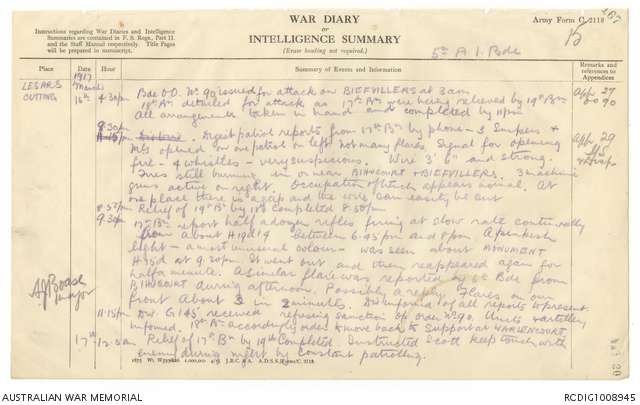 WAR DIARY
or
INTELLIGENCE SUMMARY
(Erase heading not required.)
Instructions regarding War Diaries and Intelligence
Summaries are contained in F. S. Regs., Part II.
and the Staff Manual respectively. Title Pages
will be prepared in manuscript.
Army Form C. 2118
167
5th A I Bde
Place Date Hour Summary of Events and Information Remarks and references to Appendices
LE SARS CUTTING
1917
March
16th 4.30pm Bde O.O. No 90 issued for attack on BIEFVILLERS at 3am App 27
18th Bn detailed for attack as 17th Bn were being relieved by 19th Bn OO 90
All arrangements taken in hand and completed by 11pm
8.30pm Digest patrol reports from 17th Bn by phone - 3 Snipers + App 29
MG opened on one patrol on left not many flares. Signal for opening
fire - 4 whistles - very suspicious. Wire 3' 6" and strong.
Fires still burning in or near BIHUCOURT + BIEFVILLERS. 3 machine
guns active on right. Occupation of trench appears normal. At
one place there is a gap and the wire can easily be cut
8.50pm Relief of 19th Bn by 18th Completed 8.50pm
9.30pm 17th Bn report half a dozen rifles firing at slow rate continually
from about H19d19 between 6.45pm and 8pm. A pinkish
light - a most unusual colour - was seen about MONUMENT
H15d at 9.20pm. It went out and then reappeared again for
half a minute. A similar flare was reported by Bde from
BIHUCOURT during afternoon. Possibly a reply. Flares on our
front about 3 in 2 minutes. Div informed of all reports to present
11.15pm Div G.145 received refusing sanction of order No 90. Units + artillery
informed. 18th Bn accordingly ordered to move back to Support at WARLENCOURT
17th 12.5am Relief of 17th Bn by 19th Completed. Instructed Scott keep touch with
enemy during night by constant patrolling.
Major
1875 Wt. W593/826 1,000,000 4/15 J.B.C. & A. A.D.S.S./Forms/C. 2118.
AUSTRALIAN WAR MEMORIAL
RCDIG1008945